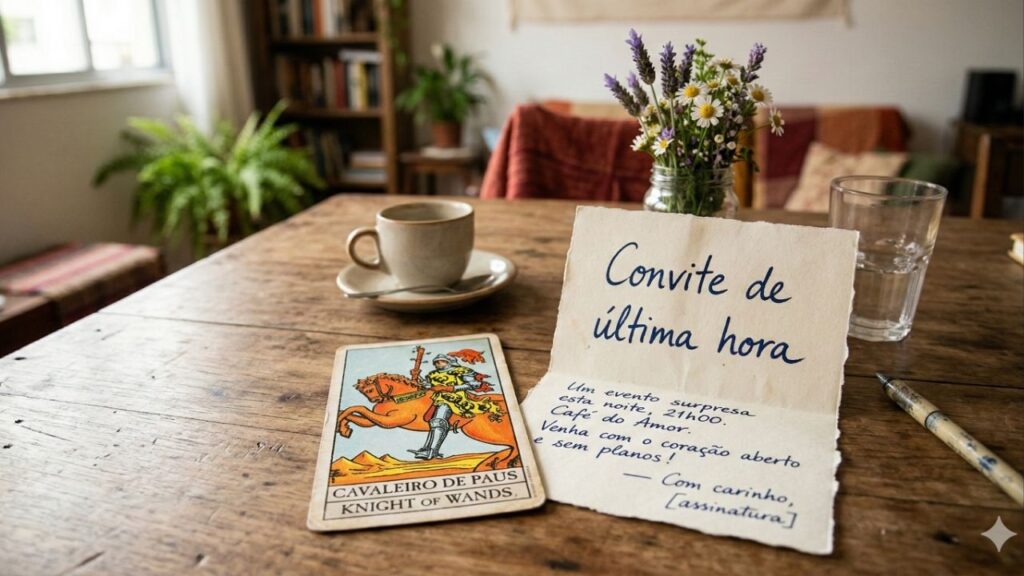 CAVALEIRO DE PAUS
KNIGHT OF WANDS.
Convite de
última hora
Um evento surpresa
esta noite, 21h00.
Café do Amor.
Venha com o coração aberto
e sem planos!
— Com carinho,
[assinatura]